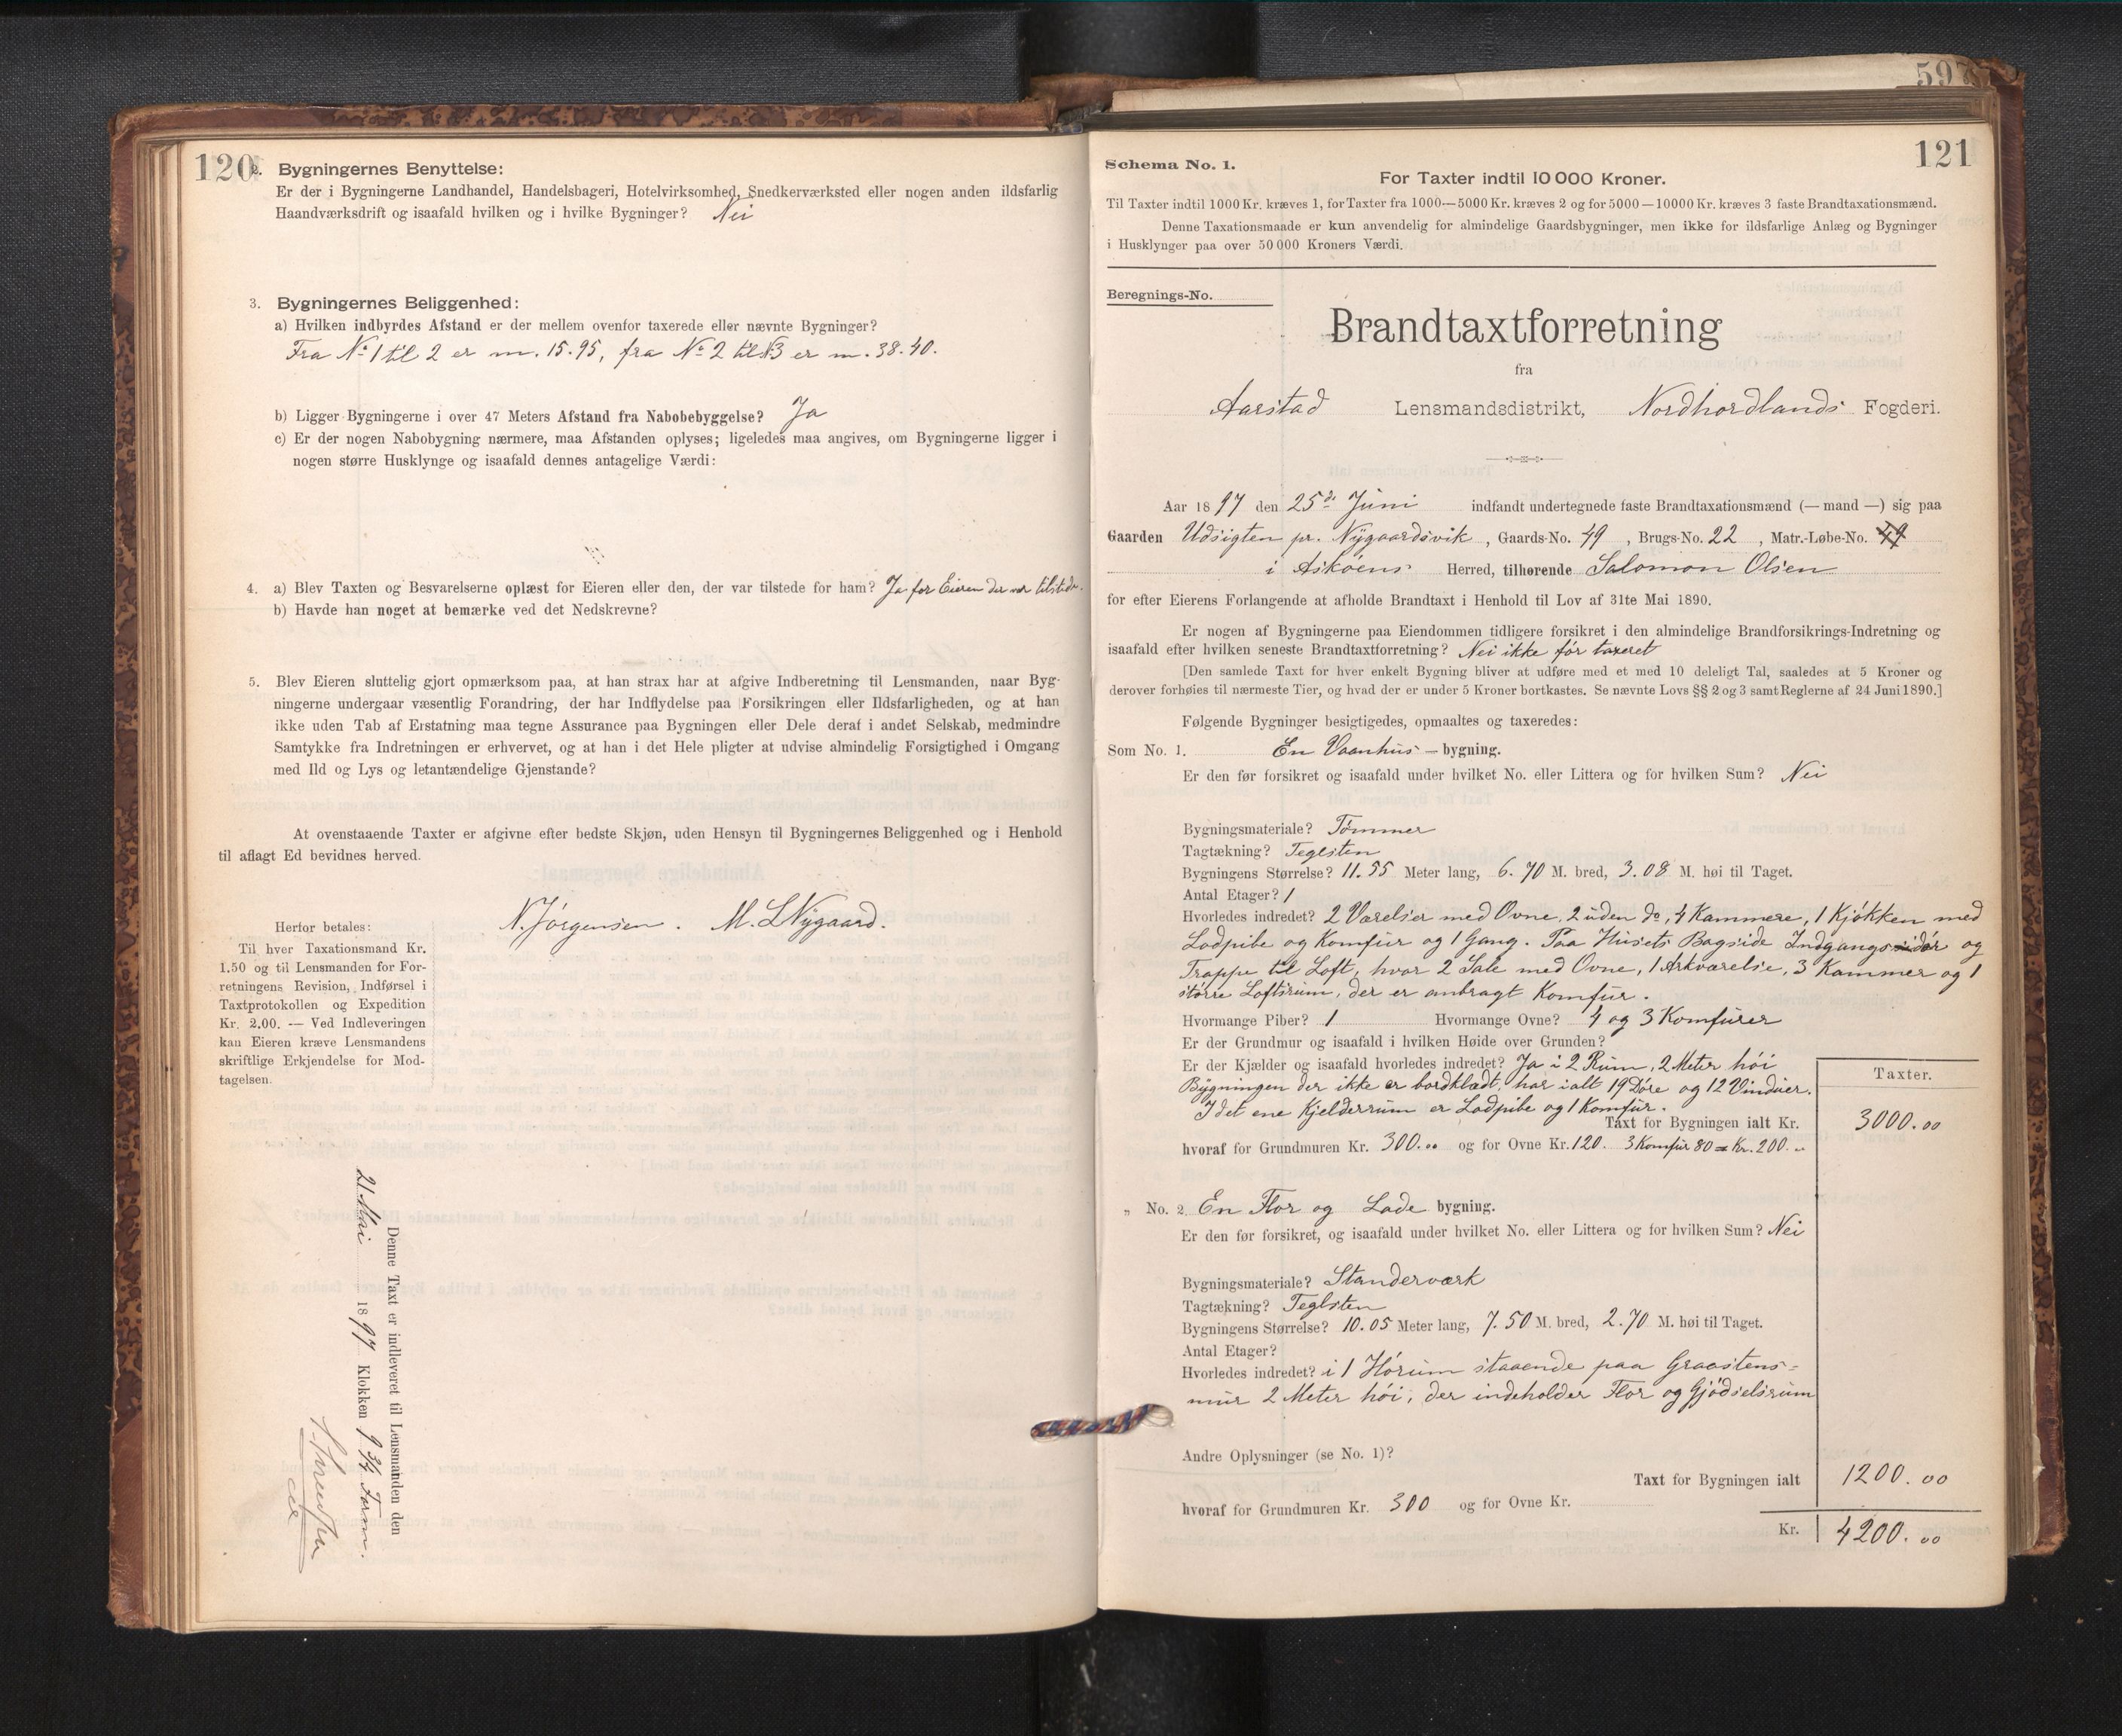 120
2. Bygningernes Benyttelse:
Er der i Bygningerne Landhandel, Handelsbageri, Hotelvirksomhed, Snedkerværksted eller nogen anden ildsfarlig
Haandværksdrift og isaafald hvilken og i hvilke Bygninger? Nei
3. Bygningernes Beliggenhed:
a) Hvilken indbyrdes Afstand er der mellem ovenfor taxerede eller nævnte Bygninger?
Fra No 1 til 2 er m. 15.95, fra No 2 til 3 er m. 38.40.
b) Ligger Bygningerne i over 47 Meters Afstand fra Nabobebyggelse? Ja
c) Er der nogen Nabobygning nærmere, maa Afstanden oplyses; ligeledes maa angives, om Bygningerne ligger i
nogen større Husklynge og isaafald dennes antagelige Værdi:
4. a) Blev Taxten og Besvarelserne oplæst for Eieren eller den, der var tilstede for ham? Ja for Eieren der var tilstede.
b) Havde han noget at bemærke ved det Nedskrevne?
5. Blev Eieren sluttelig gjort opmærksom paa, at han strax har at afgive Indberetning til Lensmanden, naar Byg-
ningerne undergaar væsentlig Forandring, der har Indflydelse paa Forsikringen eller Ildsfarligheden, og at han
ikke uden Tab af Erstatning maa tegne Assurance paa Bygningen eller Dele deraf i andet Selskab, medmindre
Samtykke fra Indretningen er erhvervet, og at han i det Hele pligter at udvise almindelig Forsigtighed i Omgang
med Ild og Lys og letantændelige Gjenstande?
At ovenstaaende Taxter er afgivne efter bedste Skjøn, uden Hensyn til Bygningernes Beliggenhed og i Henhold
til aflagt Ed bevidnes herved.
N. Jørgensen. M. L Nygaard.
Herfor betales:
Til hver Taxationsmand Kr.
1.50 og til Lensmanden for For-
retningens Revision, Indførsel i
Taxtprotokollen og Expedition
Kr. 2.00. — Ved Indleveringen
kan Eieren kræve Lensmandens
skriftlige Erkjendelse for Mod-
tagelsen.
Denne Taxt er indleveret til Lensmanden den
21 Mai 1897 Klokken 9 3/4 Form.
597
121
Schema No. 1.
For Taxter indtil 10 000 Kroner.
Til Taxter indtil 1000 Kr. kræves 1, for Taxter fra 1000—5000 Kr. kræves 2 og for 5000—10000 Kr. kræves 3 faste Brandtaxationsmænd.
Denne Taxationsmaade er kun anvendelig for almindelige Gaardsbygninger, men ikke for ildsfarlige Anlæg og Bygninger
i Husklynger paa over 50 000 Kroners Værdi.
Beregnings-No.
Brandtaxtforretning
fra
Aarstad Lensmandsdistrikt, Nordhordlands Fogderi.
Aar 1897 den 25de Juni indfandt undertegnede faste Brandtaxationsmænd (— mand —) sig paa
Gaarden Udsigten pr. Nygaardsvik, Gaards-No. 49, Brugs-No. 22, Matr.-Løbe-No.
i Askøens Herred, tilhørende Salomon Olsen
for efter Eierens Forlangende at afholde Brandtaxt i Henhold til Lov af 31te Mai 1890.
Er nogen af Bygningerne paa Eiendommen tidligere forsikret i den almindelige Brandforsikrings-Indretning og
isaafald efter hvilken seneste Brandtaxtforretning? Nei ikke før taxeret
[Den samlede Taxt for hver enkelt Bygning bliver at udføre med et med 10 deleligt Tal, saaledes at 5 Kroner og
derover forhøies til nærmeste Tier, og hvad der er under 5 Kroner bortkastes. Se nævnte Lovs §§ 2 og 3 samt Reglerne af 24 Juni 1890.]
Følgende Bygninger besigtigedes, opmaaltes og taxeredes:
Som No. 1. En Vaanhus — bygning.
Er den før forsikret og isaafald under hvilket No. eller Littera og for hvilken Sum? Nei
Bygningsmateriale? Tømmer
Tagtækning? Teglsten
Bygningens Størrelse? 11.55 Meter lang, 6.70 M. bred, 3.08 M. høi til Taget.
Antal Etager? 1
Hvorledes indredet? 2 Værelser med Ovne, 2 uden do, 4 Kammere, 1 Kjøkken med
Lodpibe og Komfur og 1 Gang. Paa Husets Bagside Indgangsdør og
Trappe til Loft, hvor 2 Sale med Ovne, 1 Arkværelse, 3 Kammer og 1
større Loftsrum, der er anbragt Komfur.
Hvormange Piber? 1 Hvormange Ovne? 4 og 3 Komfurer
Er der Grundmur og isaafald i hvilken Høide over Grunden?
Er der Kjælder og isaafald hvorledes indredet? Ja i 2 Rum, 2 Meter høi
Bygningen der ikke er bordklædt, har ialt 19 Døre og 12 Vinduer.
I det ene Kjelderrum er Lodpibe og 1 Komfur.
Taxter.
Taxt for Bygningen ialt Kr. 3000.00
hvoraf for Grundmuren Kr. 300.00 og for Ovne Kr. 120. 3 Komfur 80 = Kr. 200.
„ No. 2. En Flor og Lade bygning.
Er den før forsikret, og isaafald under hvilket No. eller Littera og for hvilken Sum? Nei
Bygningsmateriale? Standerværk
Tagtækning? Teglsten
Bygningens Størrelse? 10.05 Meter lang, 7.50 M. bred, 2.70 M. høi til Taget.
Antal Etager?
Hvorledes indredet? i 1 Hørum staaende paa Graastens-
mur 2 Meter høi, der indeholder Flor og Gjødselsrum
Andre Oplysninger (se No. 1)?
Taxt for Bygningen ialt 1200.00
hvoraf for Grundmuren Kr. 300 og for Ovne Kr.
Kr. 4200.00